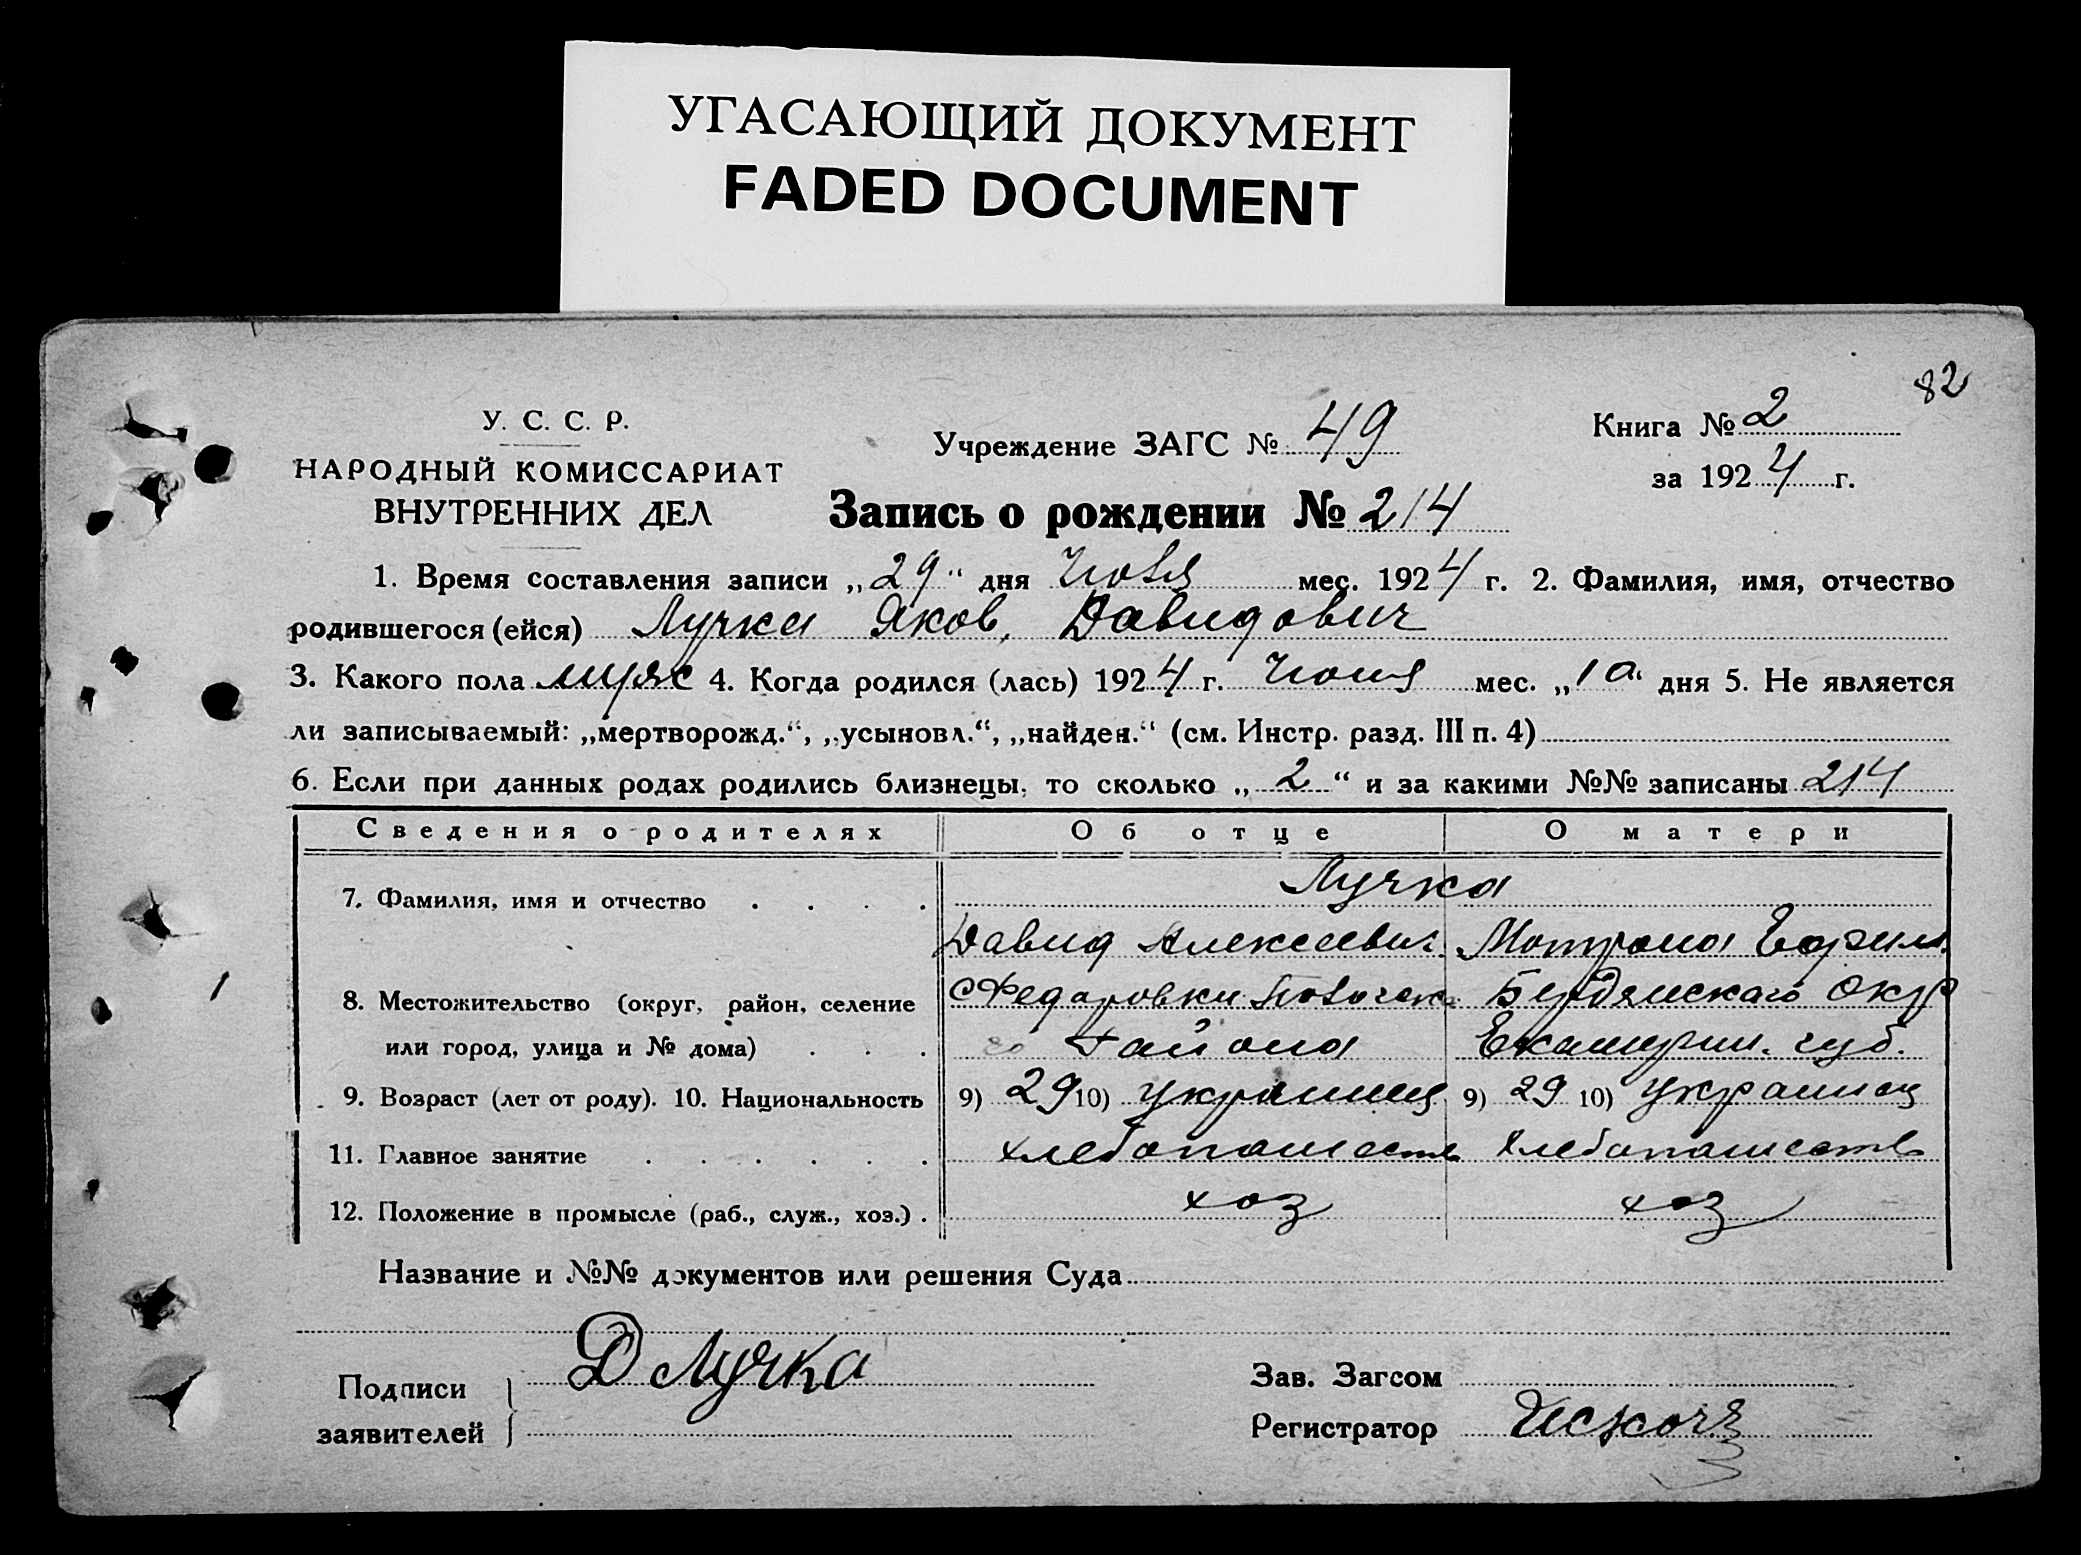 УГАСАЮЩИЙ ДОКУМЕНТ
FADED DOCUMENT
82
У. С. С. Р.
НАРОДНЫЙ КОМИССАРИАТ
ВНУТРЕННИХ ДЕЛ
Учреждение ЗАГС № 49
Книга № 2
за 1924 г.
Запись о рождении № 214
1. Время составления записи „29“ дня мес. 1924 г. 2. Фамилия, имя, отчество
родившегося (ейся) Лучка Яков, Давидович
3. Какого пола муж 4. Когда родился (лась) 1924 г. мес. „1“ дня 5. Не является
ли записываемый: „мертворожд.“, „усыновл.“, „найден.“ (см. Инстр. разд. III п. 4)
6. Если при данных родах родились близнецы, то сколько „2“ и за какими №№ записаны 214
Сведения о родителях Об отце О матери
7. Фамилия, имя и отчество Лучка
Давид Алексеевич Мотрона
8. Местожительство (округ, район, селение Федоровки Бердянскаго Окр
или город, улица и № дома) го Района Екатерин. губ.
9. Возраст (лет от роду). 10. Национальность 9) 29 10) украинец 9) 29 10) украинец
11. Главное занятие хлебопашеств хлебопашеств
12. Положение в промысле (раб., служ., хоз.) . хоз хоз
Название и №№ документов или решения Суда
Подписи заявителей Д Лучка
Зав. Загсом
Регистратор